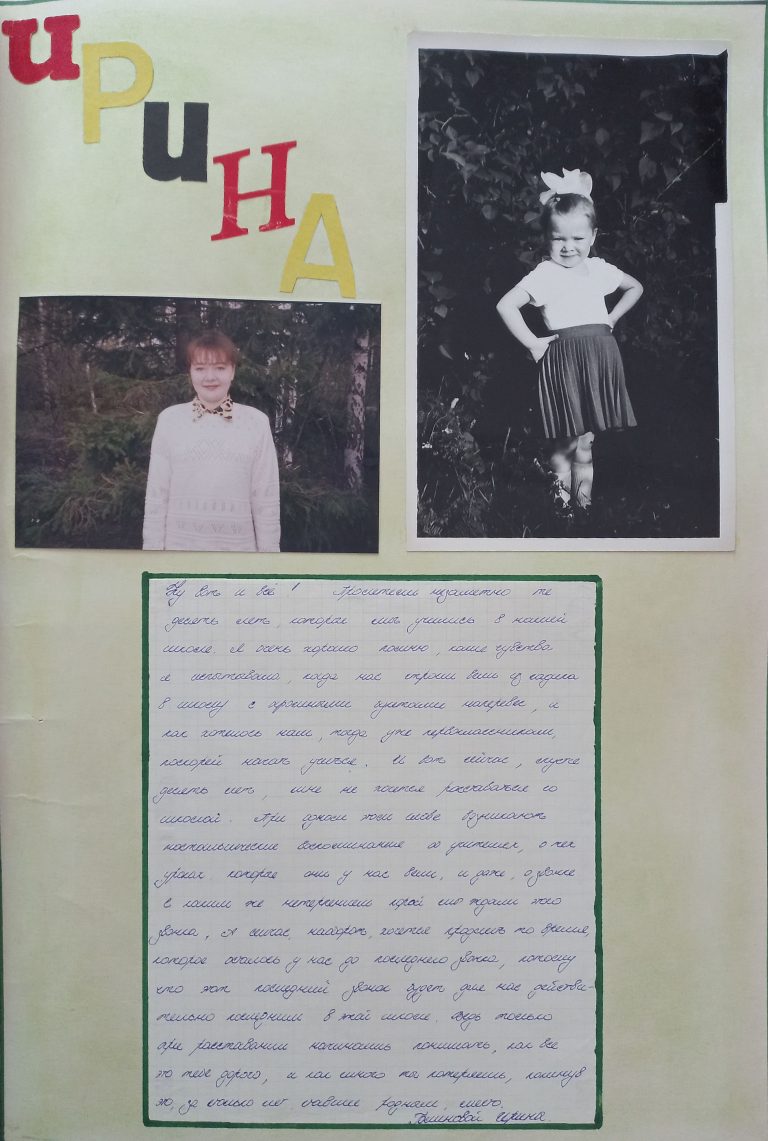 ИРИНА
Ну вот и всё! Пролетели незаметно те
десять лет, которые мы учились в нашей
школе. Я очень хорошо помню, какие чувства
я испытывала, когда нас строем вели из садика
в школу с оранжевыми наперевес, и
как хотелось нам, тогда уже первоклассникам,
поскорей начать учиться. И вот сейчас, спустя
десять лет, мне не хочется расставаться со
школой. При одном этом слове возникают
ностальгические воспоминания об учителях, о тех
уроках которые они у нас вели, и даже, о звонке
с каким же нетерпением порой мы ждали этого
звонка, А сейчас, наоборот, хочется продлить то время,
которое осталось у нас до последнего звонка, потому
что этот последний звонок будет для нас действи-
тельно последним в этой школе. Ведь только
при расставании начинаешь понимать, как все
это тебе дорого, и как много ты потеряешь, покинув
это, за столько лет ставшее родным, место.
Ирина